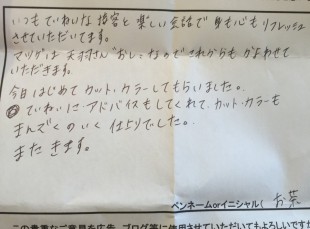 いつもていねいな接客と楽しい会話で身も心もリフレッシュ
させていただいてます。
マツゲは さんおしなのでこれからもかよわせて
いただきます。
今日はじめてカット・カラーしてもらいました。
ていねいにアドバイスもしてくれて、カット・カラーも
まんぞくのいく仕上りでした。
またきます。
ペンネームorイニシャル(お茶
この貴重なご意見を広告、ブログ等に使用させていただいてもよろしいですか